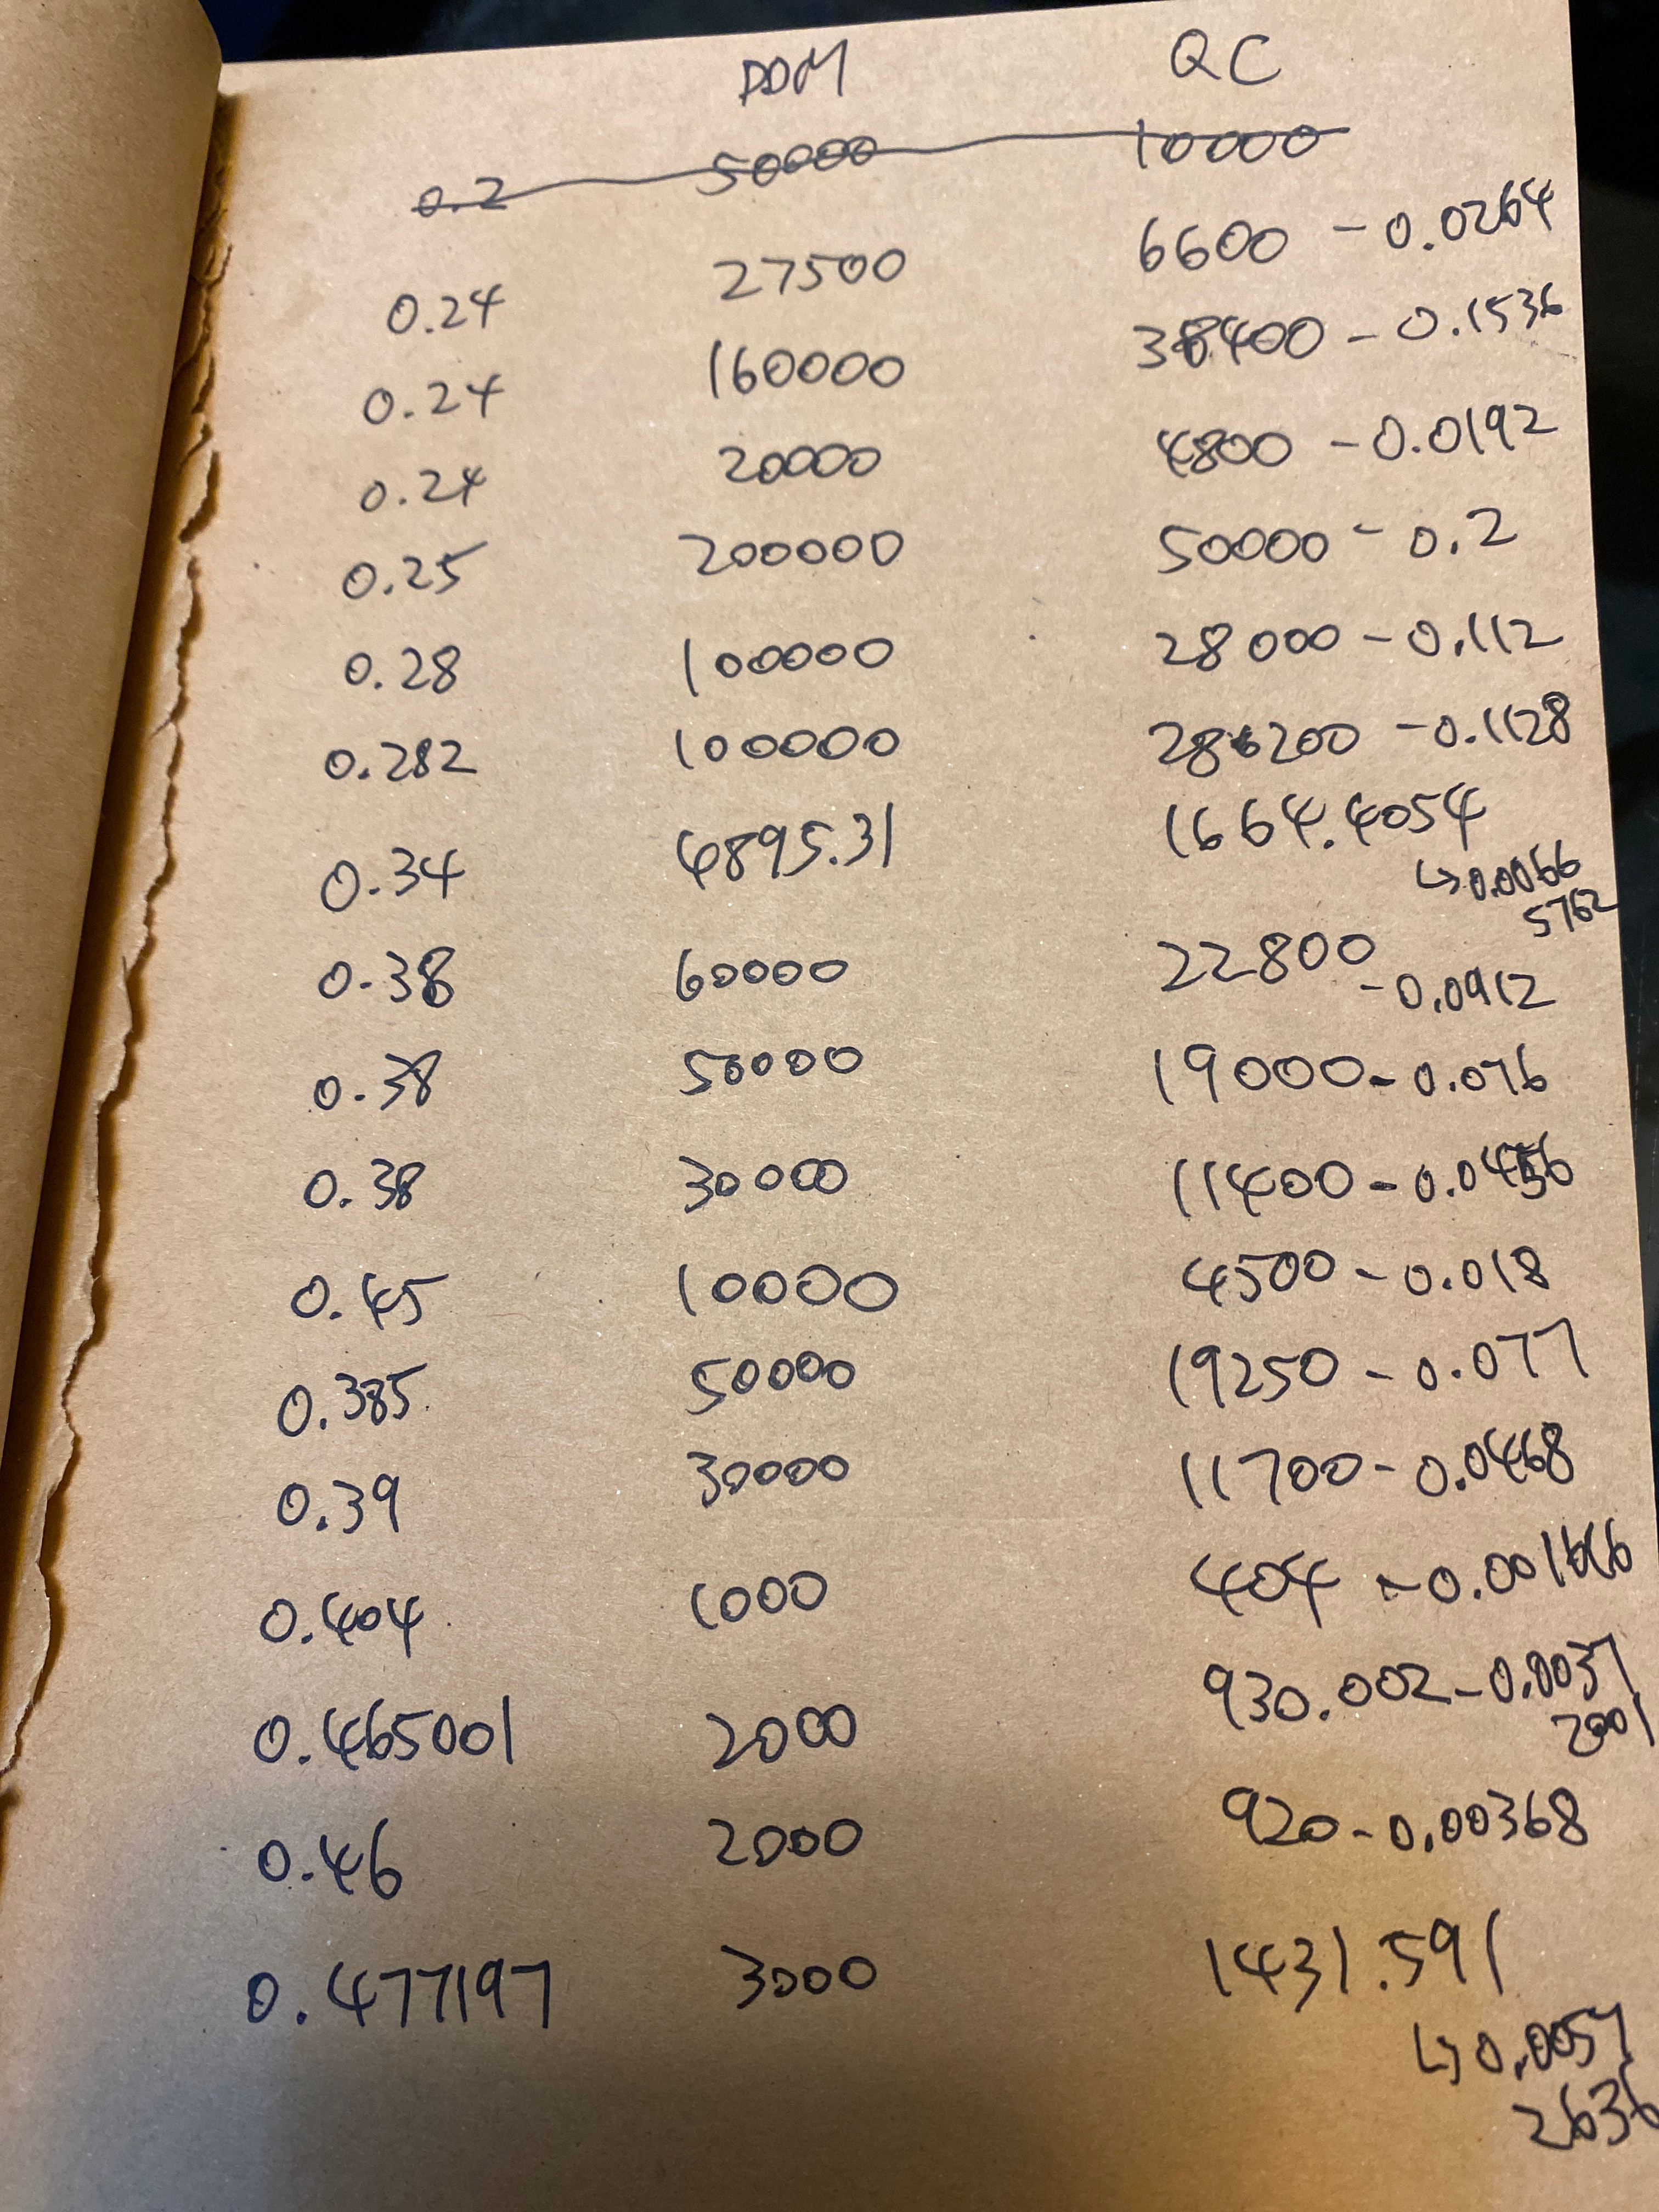 DDM QC
0.2 50000 10000
0.24 27500 6600 - 0.0264
0.24 160000 38400 - 0.1536
0.24 20000 4800 - 0.0192
0.25 200000 50000 - 0.2
0.28 100000 28000 - 0.112
0.282 100000 28200 - 0.1128
0.34 4895.31 1664.4054
↳ 0.0066
5762
0.38 60000 22800
- 0.0912
0.38 50000 19000 - 0.076
0.38 30000 11400 - 0.0456
0.45 10000 4500 - 0.018
0.385 50000 19250 - 0.077
0.39 30000 11700 - 0.0468
0.404 1000 404 - 0.001616
0.465001 2000 930.002 - 0.0037
2001
0.46 2000 920 - 0.00368
0.477197 3000 1431.591
↳ 0.0057
2636